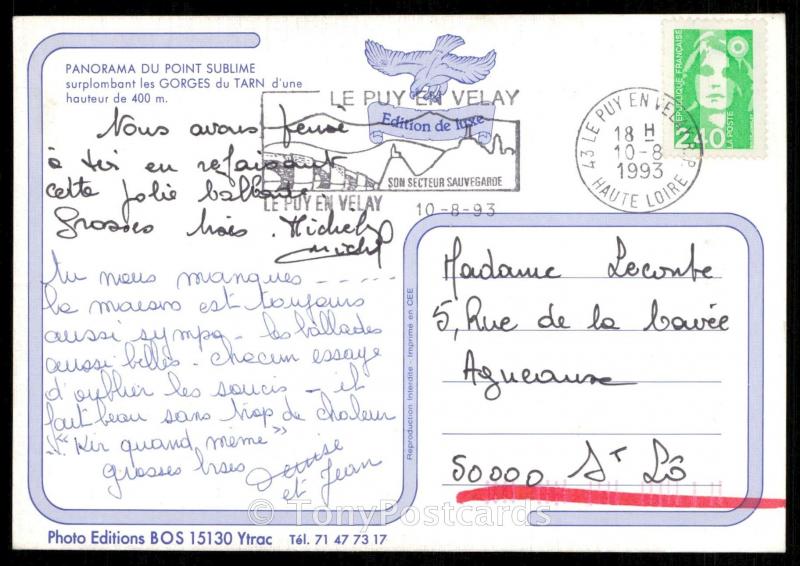 PANORAMA DU POINT SUBLIME
surplombant les GORGES du TARN d'une
hauteur de 400 m.
Nous avons pensé
à toi en refaisant
cette jolie ballade.
Grosses bises. Michel
Michel
Tu nous manques - - - - -
la maison est toujours
aussi sympa - les ballades
aussi belles. Chacun essaye
d'oublier les soucis - il
fait beau sans trop de chaleur
"Kir quand même"
grosses bises Denise
et Jean
Edition de luxe
LE PUY EN VELAY
SON SECTEUR SAUVEGARDE
LE PUY EN VELAY
10-8-93
43 LE PUY EN VELAY R.P.
18 H
10-8
1993
HAUTE LOIRE
REPUBLIQUE FRANÇAISE
2,40
LA POSTE
Madame Leconte
5, Rue de la Cavée
Agneaux
50000 St Lô
Reproduction Interdite - Imprimé en CEE
© TonyPostcards
Photo Editions BOS 15130 Ytrac Tél. 71 47 73 17